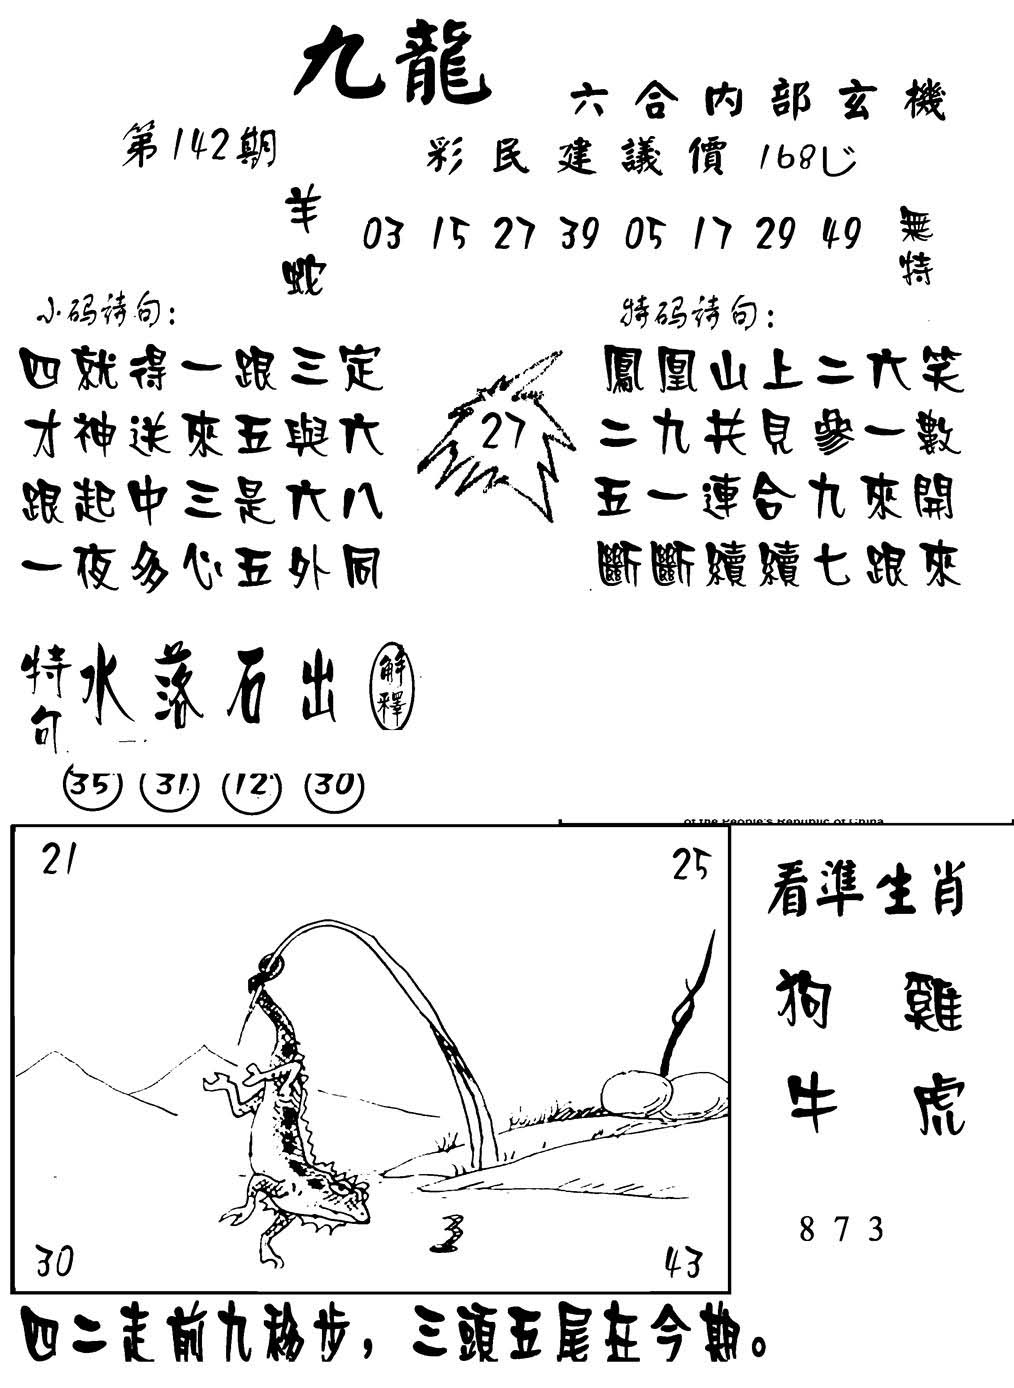 九龍
六合内部玄機
第142期
彩民建議價168じ
羊
蛇
03 15 27 39 05 17 29 49
無特
小码诗句:
四就得一跟三定
才神送來五與六
跟起中三是六八
一夜多心五外同
27
特码诗句:
鳳凰山上二六笑
二九共見參一數
五一連合九來開
斷斷續續七跟來
特句
水落石出
解釋
35 31 12 30
of the People's Republic of China
21
25
30
43
看準生肖
狗 雞
牛 虎
873
四二走前九移步，三頭五尾在今期。